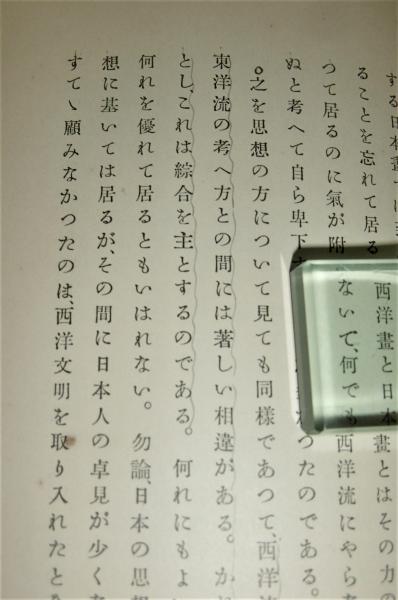 する日本畫
ることを忘れて居る 西洋畫と日本畫とはその力の
つて居るのに氣が附 ないで、何でも西洋流にやら
ぬと考へて自ら卑下 つたのである。
之を思想の方について見ても同樣であつて、西洋
東洋流の考へ方との間には著しい相違がある。か
とし、これは綜合を主とするのである。何れにもよ
何れを優れて居るともいはれない。勿論、日本の思
想に基いては居るが、その間に日本人の卓見が少く
すてゝ顧みなかつたのは、西洋文明を取り入れたと